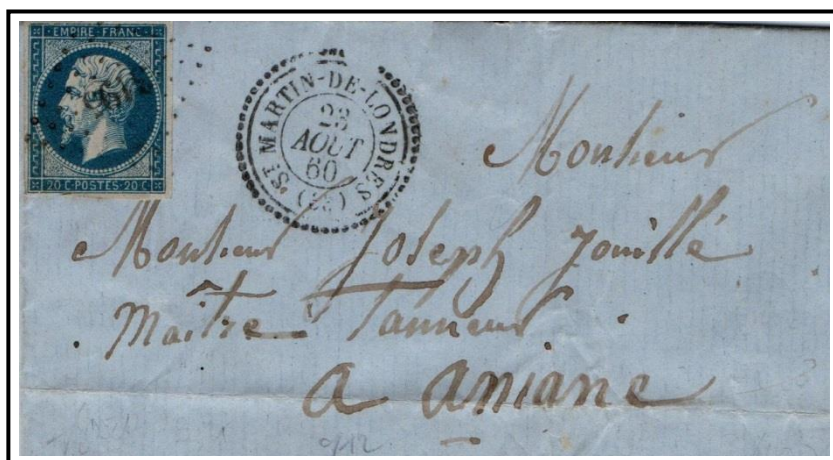 EMPIRE FRANC
20 C·POSTES·20 C
ST MARTIN-DE-LONDRES
23
AOUT
60
Monsieur
Monsieur Joseph Jouillé
Maître Tanneur
a aniane